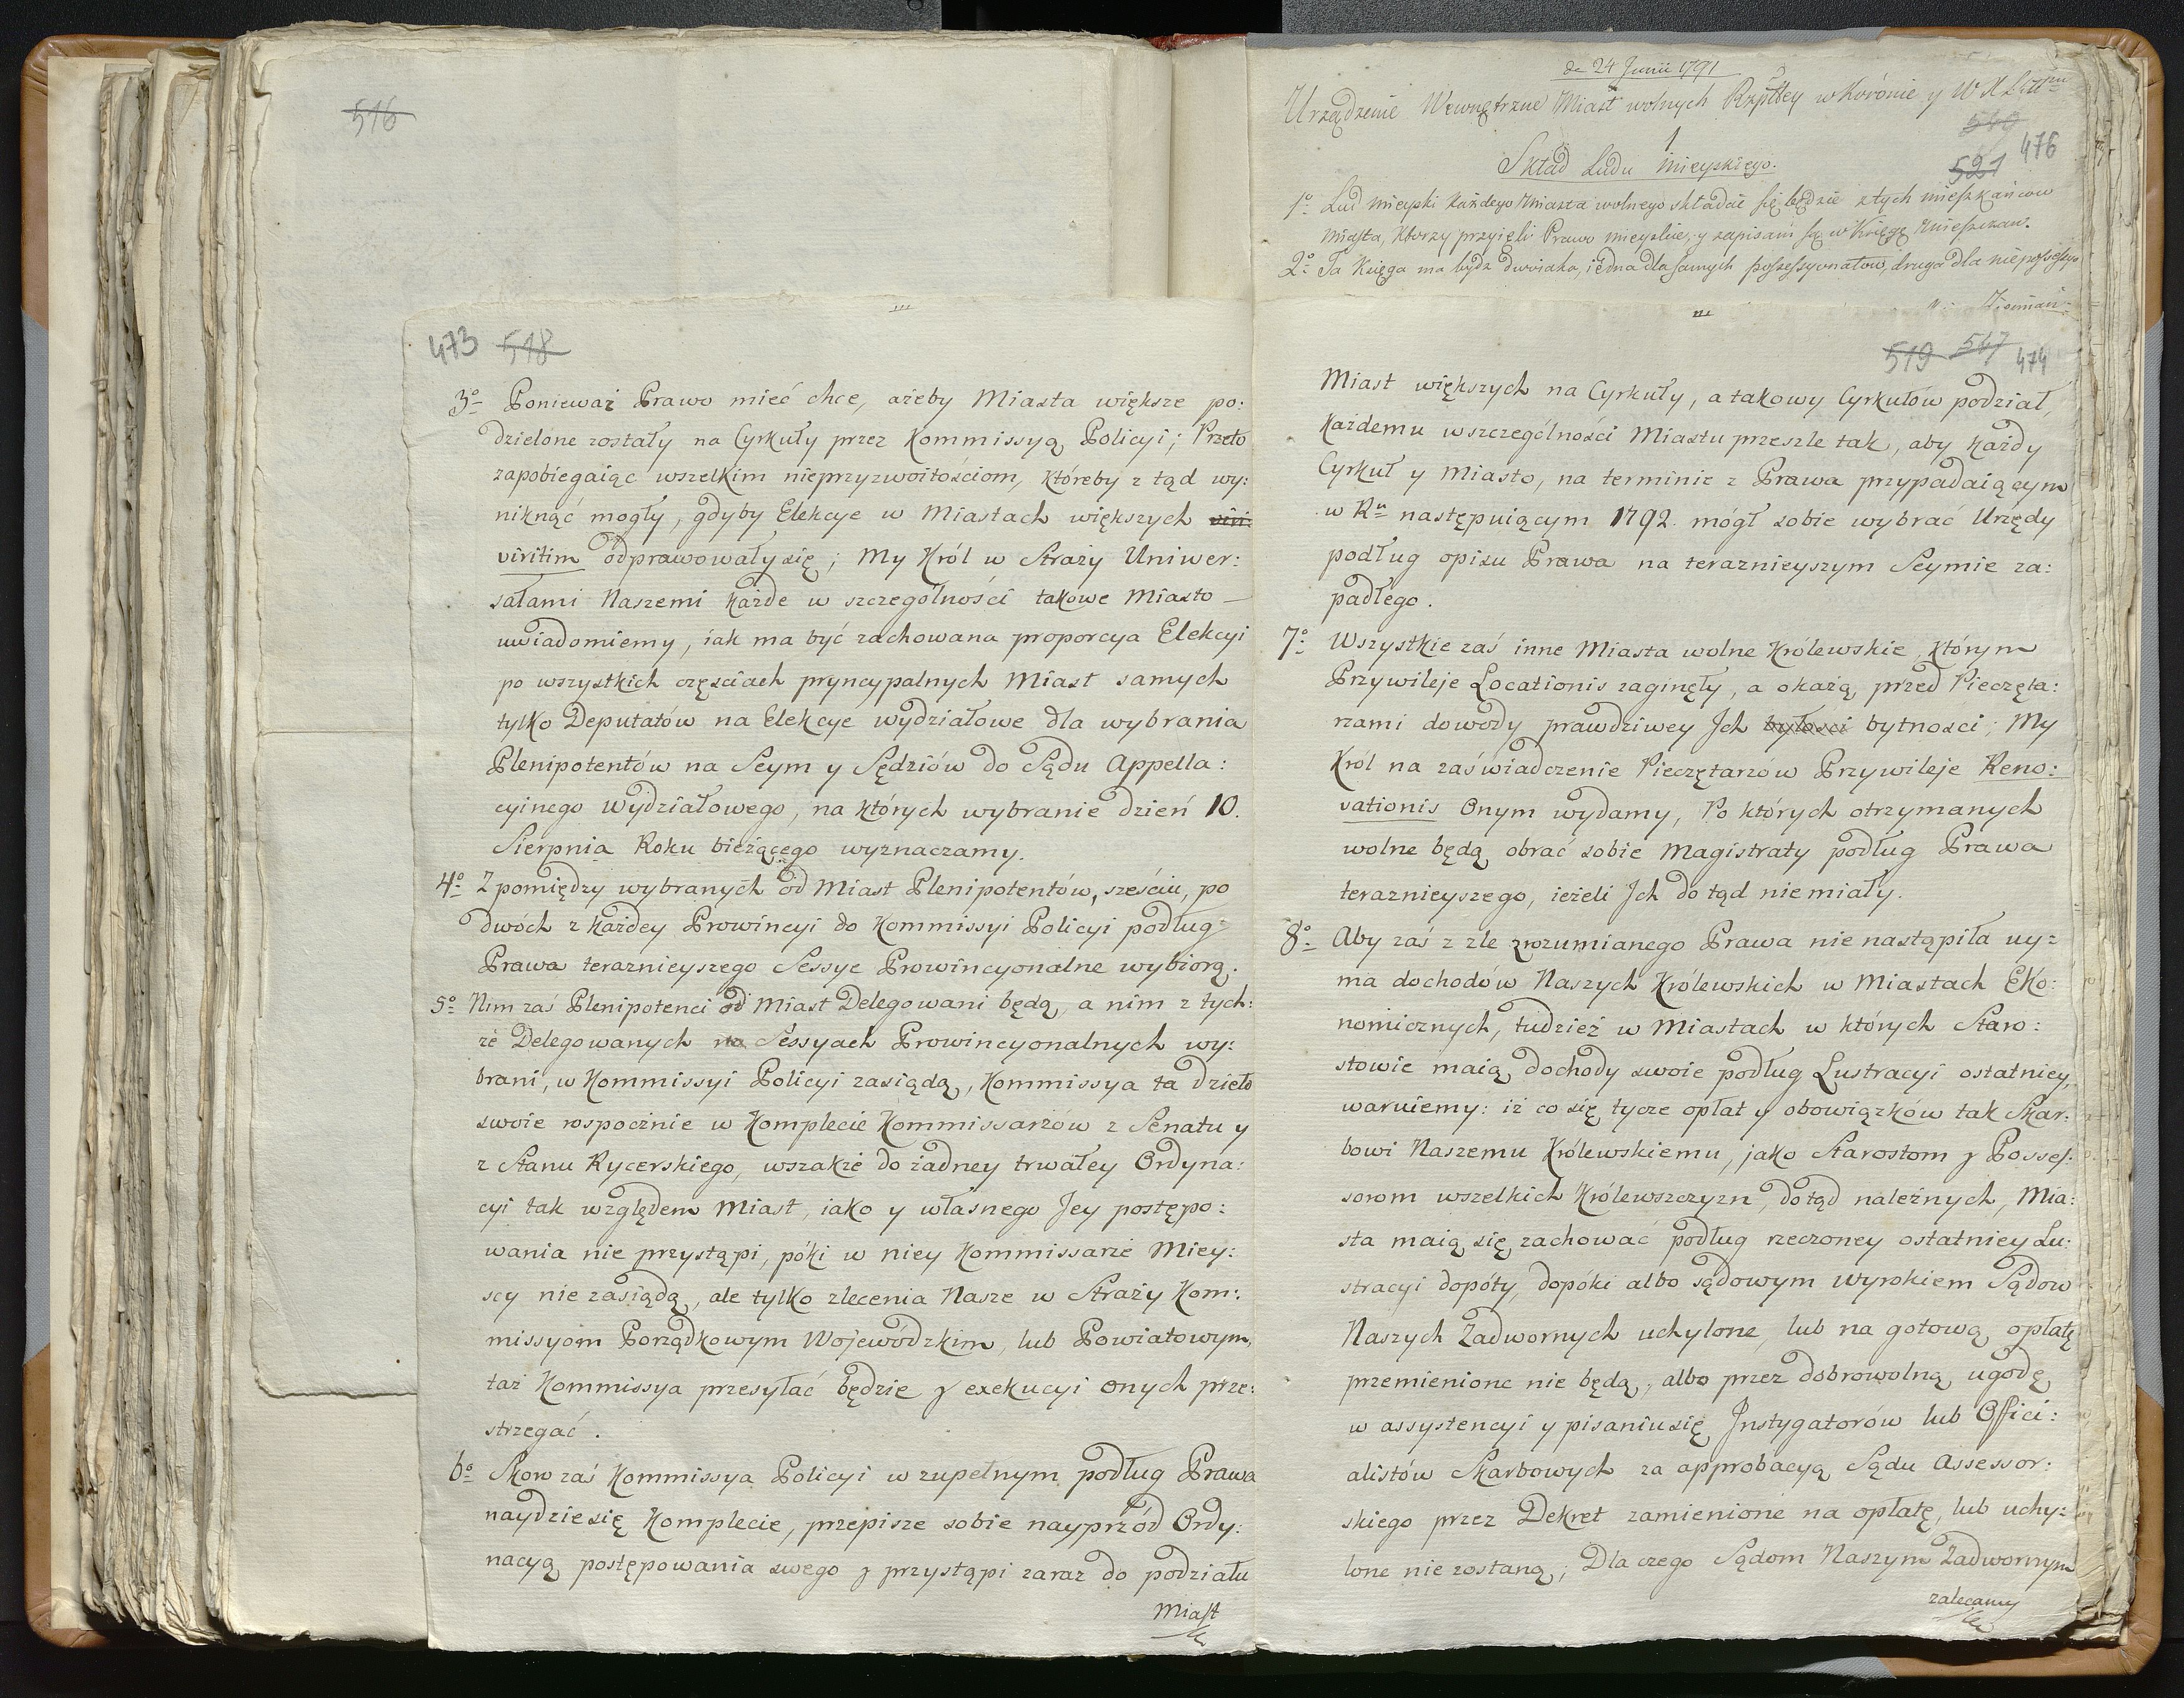 516
473 518
3o Ponieważ Prawo mieć chce, ażeby Miasta większe po:
dzielone zostały na Cyrkuły przez Kommissyą Policyi; Przeto
zapobiegaiąc wszelkim nieprzyzwoitościom, któreby z tąd wy:
niknąć mogły, gdyby Elekcye w Miastach większych viri:
viritim odprawowały się; My Król w Straży Uniwer:
sałami Naszemi każde w szczególności takowe Miasto
uwiadomiemy, iak ma być zachowana proporcya Elekcyi
po wszystkich częściach pryncypalnych Miast samych
tylko Deputatów na Elekcye wydziałowe dla wybrania
Plenipotentów na Seym y Sędziów do Sądu Appella:
cyinego Wydziałowego, na których wybranie dzień 10.
Sierpnia Roku bieżącego wyznaczamy.
4o Z pomiędzy wybranych od Miast Plenipotentów, sześciu, po
dwóch z każdey Prowincyi do Kommissyi Policyi podług
Prawa teraznieyszego Sessye Prowincyonalne wybiorą.
5o Nim zaś Plenipotenci od Miast Delegowani będą, a nim z tych:
że Delegowanych na Sessyach Prowincyonalnych wy:
brani, w Kommissyi Policyi zasiądą, Kommissya ta dzieło
swoie rospocznie w Komplecie Kommissarzów z Senatu y
z Stanu Rycerskiego, wszakże do żadney trwałey Ordyna:
cyi tak względem Miast, iako y własnego Jey postępo:
wania nie przystąpi, póki w niey Kommissarze Miey:
scy nie zasiądą, ale tylko zlecenia Nasze w Straży Kom:
missyom Porządkowym Wojewódzkim, lub Powiatowym,
taż Kommissya przesyłać będzie y exekucyi onych prze:
strzegać.
6o Skoro zaś Kommissya Policyi w zupełnym podług Prawa
naydzie się Komplecie, przepisze sobie nayprzód Ordy:
nacyą postępowania swego y przystąpi zaraz do podziału
Miast
de 24 Junii 1791
Urządzenie Wewnętrzne Miast wolnych Rzpltey w Koronie y W X Litt
519
521 476
1
Skład Ludu Mieyskiego.
1o Lud mieyski każdego Miasta wolnego składać się będzie z tych mieszkańców
Miasta, którzy przyięli Prawo mieyskie, y zapisani są w Księgę Mieszczan.
2o Ta Księga ma bydź dwoiaka, iedna dla samych possessyonatów, druga dla niepossessyo
519 517 474
Miast większych na Cyrkuły, a takowy Cyrkułów podział,
każdemu w szczególności Miastu przeszle tak, aby każdy
Cyrkuł y Miasto, na terminie z Prawa przypadaiącym
w Ru następuiącym 1792. mógł sobie wybrać Urzędy
podług opisu Prawa na teraznieyszym Seymie za:
padłego.
7o Wszystkie zaś inne Miasta wolne Królewskie, którym
Przywileje Locationis zaginęły, a okażą przed Pieczęta:
rzami dowody prawdziwey Jch byłości bytności; My
Król na zaświadczenie Pieczętarzów Przywileje Reno:
vationis Onym wydamy, Po których otrzymanych
wolne będą obrać sobie Magistraty podług Prawa
teraznieyszego, ieżeli Jch do tąd nie miały.
8o Aby zaś z zle zrozumianego Prawa nie nastąpiła uy:
ma dochodów Naszych Królewskich w Miastach Eko:
nomicznych, tudzież w Miastach w których Staro:
stowie maią dochody swoie podług Lustracyi ostatniey,
waruiemy: iż co się tycze opłat y obowiązków tak Skar:
bowi Naszemu Królewskiemu, jako Starostom y Posses:
sorom wszelkich Królewszczyzn, do tąd należnych, Mia:
sta maią się zachować podług rzeczoney ostatniey Lu:
stracyi dopóty, dopóki albo sądowym wyrokiem Sądow
Naszych Zadwornych uchylone, lub na gotową opłatę
przemienione nie będą, albo przez dobrowolną ugodę,
w assystencyi y pisaniu się Jnstygatorów lub Offici:
alistów Skarbowych za approbacyą Sądu Assessor:
skiego przez Dekret zamienione na opłatę, lub uchy:
lone nie zostaną; Dla czego Sądom Naszym Zadwornym
zalecamy